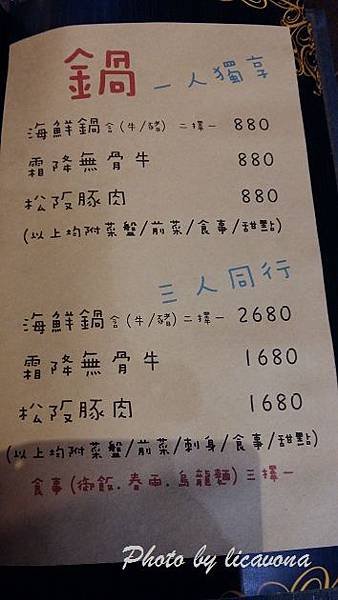 鍋 一人獨享
海鮮鍋含(牛/豬)二擇一 880
霜降無骨牛 880
松阪豚肉 880
(以上均附菜盤/前菜/食事/甜點)
三人同行
海鮮鍋含(牛/豬)二擇一 2680
霜降無骨牛 1680
松阪豚肉 1680
(以上均附菜盤/前菜/刺身/食事/甜點)
食事(御飯.春雨.烏龍麵)三擇一
Photo by licavona